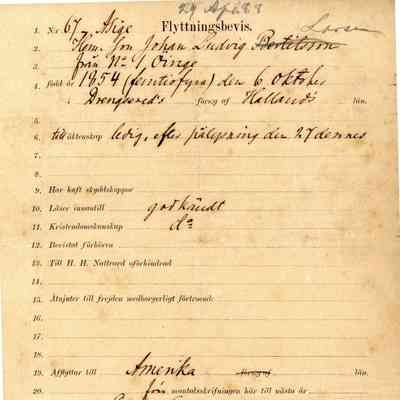 29 Apl 83
1. N:r 67, Asige Flyttningsbevis. Larsson
2. Hem. son Johan Ludvig Bertilsson
3. från No 1 Öinge
4. född år 1854 (femtiofyra) den 6 Oktober
5. Drengsered's förs:g af Hallands län.
6. till äktenskap ledig, efter pålysning den 27 dennes
7.
8.
9. Har haft skyddskoppor
10. Läser innantill godkändt
11. Kristendomskunskap do
12. Bevistat förhören
13. Till H. H. Nattvard oförhindrad
14.
15. Åtnjuter till frejden medborgerligt förtroende
16.
17.
18.
19. Afflyttar till Amerika förs:g af län.
20. från mantalsskrifningen här till nästa år